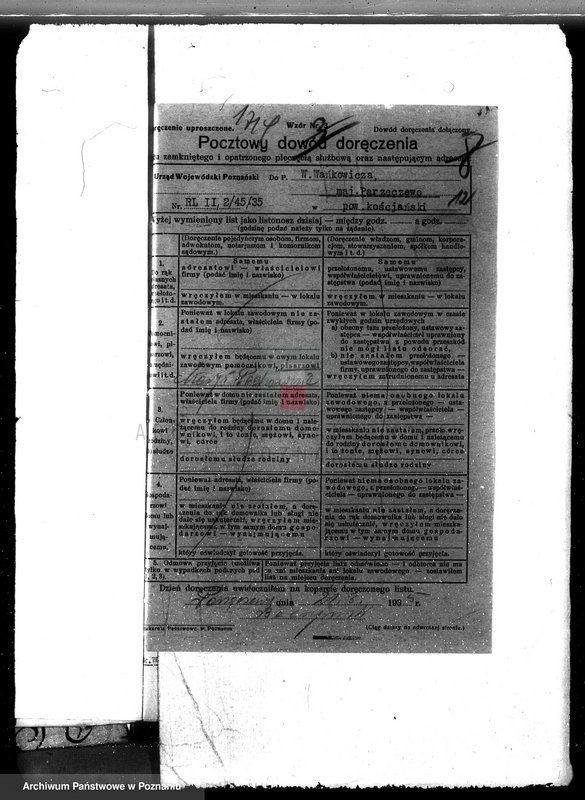 ręczenie uproszczone.
Wzór Nr. 3
Dowód doręczenia dołączony
Pocztowy dowód doręczenia
zamkniętego i opatrzonego pieczęcią służbową oraz następującym adresem
Urząd Wojewódzki Poznański Do P. W.Wańkowicza,
maj.Parzęczewo
12
Nr. RL II,2/45/35 w pow.kościański
yżej wymieniony list jako listonosz dzisiaj — między godz. — a godz.
(godzinę podać należy tylko na żądanie).
(Doręczenie pojedyńczym osobom, firmom, adwokatom, notarjuszom i komornikom sądowym.)
(Doręczenie władzom, gminom, korporacjom, stowarzyszeniom, spółkom handlowym i t. d.)
1.
Do rąk
Samemu
adresatowi — właścicielowi
firmy (podać imię i nazwisko)
wręczyłem w mieszkaniu — w lokalu
zawodowym.
Samemu
przełożonemu, ustawowemu zastępcy,
współwłaścicielowi, uprawnionemu do zastępstwa (podać imię i nazwisko)
wręczyłem w mieszkaniu — w lokalu
zawodowym.
2.
Ponieważ w lokalu zawodowym nie zastałem adresata, właściciela firmy (podać imię i nazwisko)
wręczyłem będącemu w owym lokalu
zawodowym pomocnikowi, pisarzowi
Ponieważ w lokalu zawodowym w czasie
zwykłych godzin urzędowych
a) obecny tam przełożony, ustawowy zastępca — współwłaściciel — uprawniony
do zastępstwa z powodu przeszkód
nie mógł listu odebrać,
b) nie zastałem przełożonego —
ustawowego zastępcy, współwłaściciela
firmy, uprawnionego do zastępstwa —
wręczyłem zatrudnionemu u adresata
3.
Ponieważ w domu nie zastałem adresata,
właściciela firmy (podać imię i nazwisko)
wręczyłem będącemu w domu i należącemu do rodziny dorosłemu domownikowi, i to żonie, mężowi, synowi, córce
dorosłemu słudze rodziny
Ponieważ niema osobnego lokalu
zawodowego, z przełożonego — ustawowego zastępcy — współwłaściciela
— uprawnionego do zastępstwa —
w mieszkaniu nie zastałem, przeto wręczyłem będącemu w domu i należącemu
do rodziny dorosłemu domownikowi,
i to żonie, mężowi, synowi, córce
dorosłemu słudze rodziny
4.
Ponieważ adresata, właściciela firmy (podać imię i nazwisko)
w mieszkaniu nie zastałem, a doręczenie do rąk domownika lub sługi nie
dało się uskutecznić, wręczyłem mieszkającemu w tym samym domu gospodarzowi — wynajmującemu
który oświadczył gotowość przyjęcia.
Ponieważ niema osobnego lokalu zawodowego, a przełożonego — współwłaściciela — uprawnionego do zastępstwa —
w mieszkaniu nie zastałem, a doręczenie do rąk domownika lub sługi nie dało
się uskutecznić, wręczyłem mieszkającemu w tym samym domu gospodarzowi — wynajmującemu
który oświadczył gotowość przyjęcia.
5. Odmowa przyjęcia (możliwa
tylko w wypadkach podanych pod
1, 2, 3).
Ponieważ przyjęcia listu odmówiono — i odbiorca nie ma
mieszkania ani lokalu zawodowego — zostawiłem
list na miejscu doręczenia.
Dzień doręczenia uwidoczniłem na kopercie doręczonego listu.
dnia 1935 r.
Państwowa, w Poznaniu
(Ciąg dalszy na odwrotnej stronie.)
Archiwum Państwowe w Poznaniu